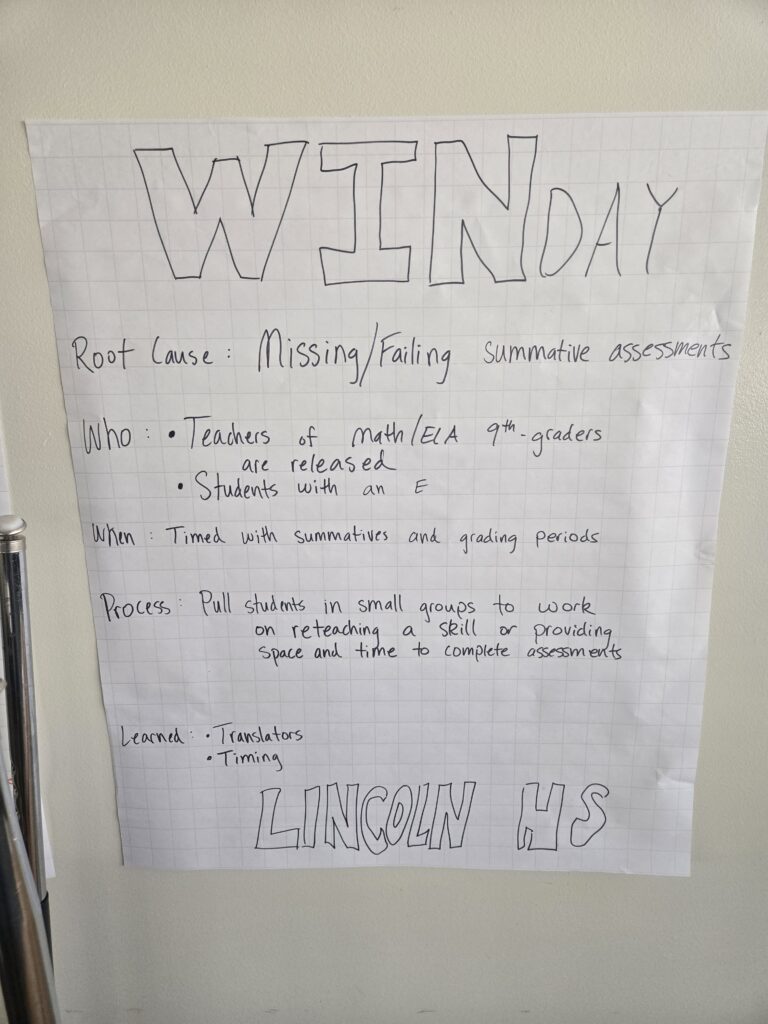 WIN DAY
Root Cause: Missing/Failing summative assessments
Who: • Teachers of math/ELA 9th-graders
are released
• Students with an E
When: Timed with summatives and grading periods
Process: Pull students in small groups to work
on reteaching a skill or providing
space and time to complete assessments
Learned: • Translators
• Timing
LINCOLN HS